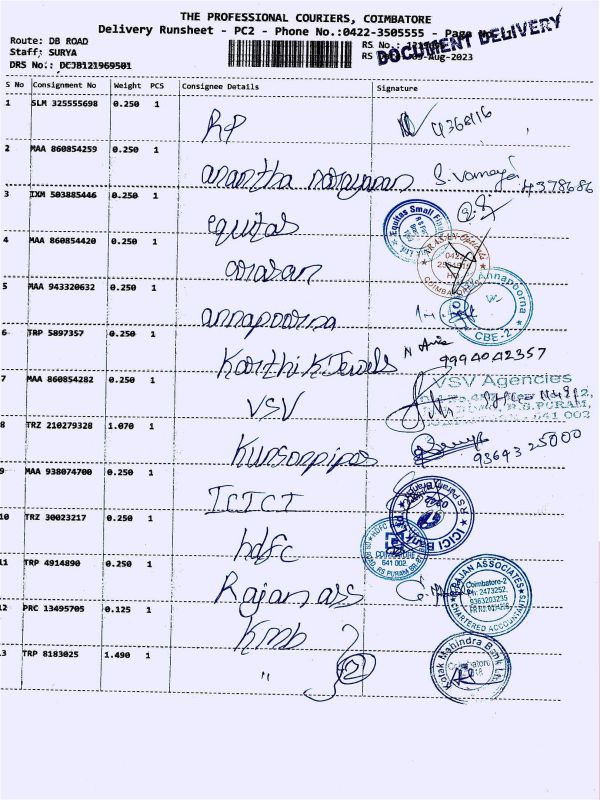 THE PROFESSIONAL COURIERS, COIMBATORE
Delivery Runsheet - PC2 - Phone No.:0422-3505555 - Page
DOCUMENT DELIVERY
Route: DB ROAD
Staff: SURYA
DRS No.: DCJB121969501
RS No.:
RS -Aug-2023
S No Consignment No Weight PCS Consignee Details Signature
1 SLM 325555698 0.250 1 RP 4368416
2 MAA 860854259 0.250 1 anantha narayanan 4378686
3 IXM 503885446 0.250 1 equitas Equitas Small
4 MAA 860854420 0.250 1 arasan COIMBATORE
5 MAA 943320632 0.250 1 annapoorna Annapoorna CBE-2
6 TRP 5897357 0.250 1 Karthik Jewels 9994042357
7 MAA 860854282 0.250 1 VSV VSV Agencies R.S.PURAM, 641 002
8 TRZ 210279328 1.070 1 93643 25000
9 MAA 938074700 0.250 1 ICICI ICICI Bank RS Puram Branch
10 TRZ 30023217 0.250 1 hdfc HDFC 641 002
11 TRP 4914890 0.250 1 Rajan ass RAJAN ASSOCIATES Coimbatore-2 Ph: 2473252, 9363203235 CHARTERED ACCOUNTANTS
12 PRC 13495705 0.125 1 Kmb
13 TRP 8183025 1.490 1 " 2 Kotak Mahindra Bank Ltd Coimbatore